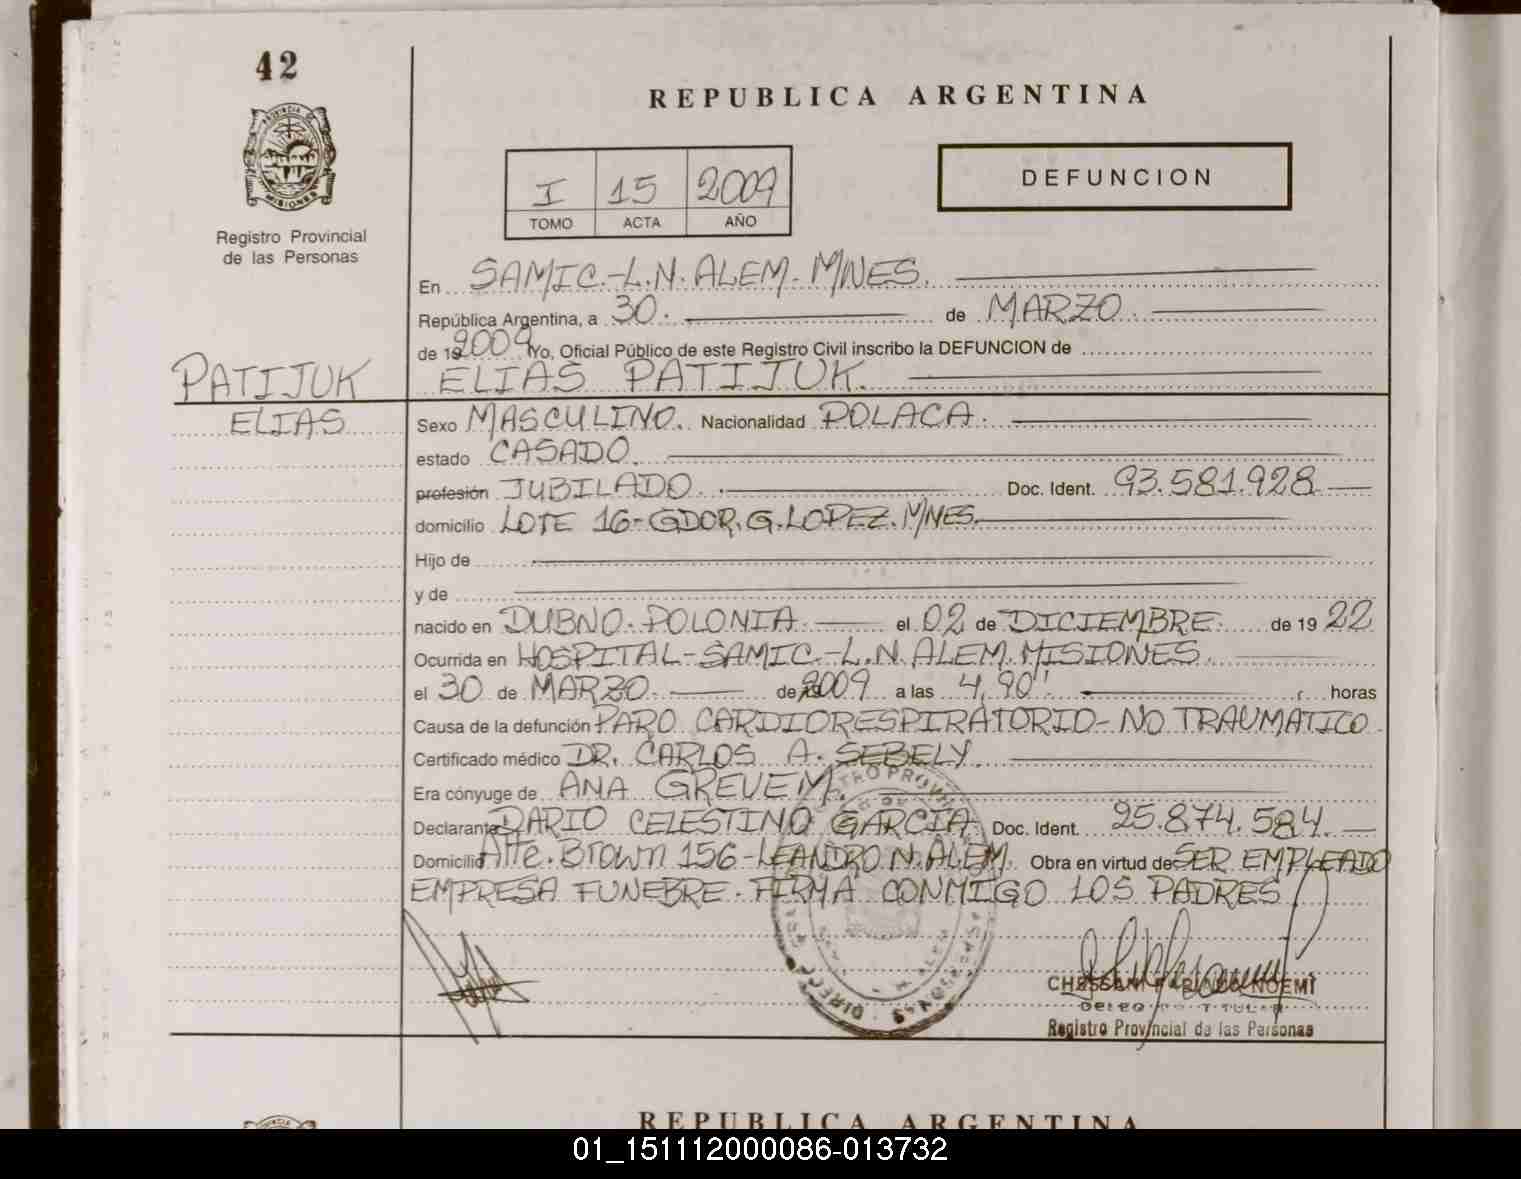 42
REPUBLICA ARGENTINA
PROVINCIA DE
MISIONES
Registro Provincial
de las Personas
I 15 2009
TOMO ACTA AÑO
DEFUNCION
En SAMIC.-L.N.ALEM-MNES.
República Argentina, a 30. de MARZO
de 19 2009 Yo, Oficial Público de este Registro Civil inscribo la DEFUNCION de
PATIJUK ELIAS PATIJUK.
ELIAS
Sexo MASCULINO. Nacionalidad POLACA.
estado CASADO.
profesión JUBILADO. Doc. Ident. 93.581.928
domicilio LOTE 16-GDOR.G.LOPEZ.MNES.
Hijo de
y de
nacido en DUBNO-POLONIA el 02 de DICIEMBRE. de 19 22
Ocurrida en HOSPITAL-SAMIC.-L.N.ALEM.MISIONES
el 30 de MARZO. de 2009 a las 4,90''. horas
Causa de la defunción PARO CARDIORESPIRATORIO-NO TRAUMATICO
Certificado médico DR. CARLOS A. SEBELY
Era cónyuge de ANA GREVEM.
Declarante DARIO CELESTINO GARCIA. Doc. Ident. 25.874.584.
Domicilio Alte. Brown 156-LEANDRO N. ALEM. Obra en virtud de SER EMPLEADO
EMPRESA FUNEBRE. FIRMA CONMIGO LOS PADRES
NOEMI
Registro Provincial de las Personas
REPUBLICA ARGENTINA
01_151112000086-013732